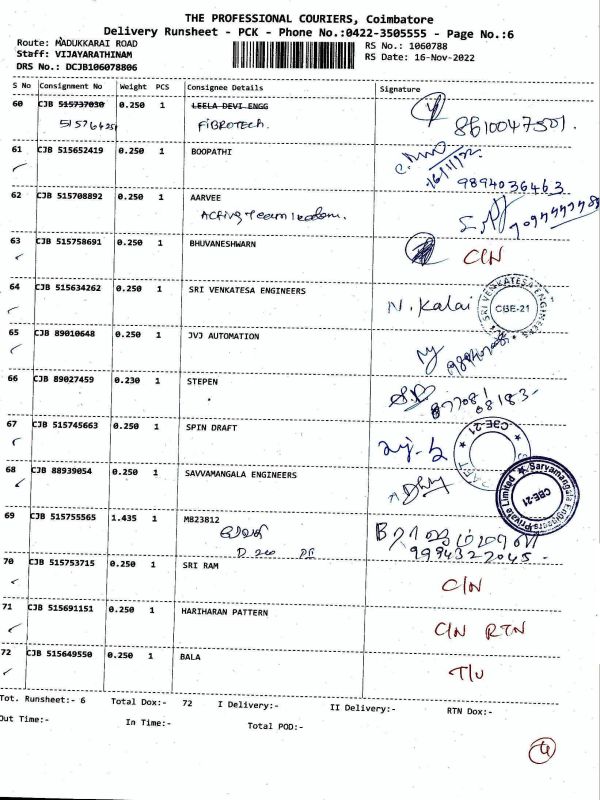 THE PROFESSIONAL COURIERS, Coimbatore
Delivery Runsheet - PCK - Phone No.:0422-3505555 - Page No.:6
Route: MADUKKARAI ROAD
Staff: VIJAYARATHINAM
DRS No.: DCJB106078806
RS No.: 1060788
RS Date: 16-Nov-2022
S No Consignment No Weight PCS Consignee Details Signature
60 CJB 515737030 0.250 1 LEELA DEVI ENGG
FIBROTECH. 8610047501.
61 CJB 515652419 0.250 1 BOOPATHI
16/11/22
9894036463
62 CJB 515708892 0.250 1 AARVEE
63 CJB 515758691 0.250 1 BHUVANESHWARN C/N
64 CJB 515634262 0.250 1 SRI VENKATESA ENGINEERS N. Kalai
SRI VENKATESA ENGINEERS CBE-21
65 CJB 89010648 0.250 1 JVJ AUTOMATION
66 CJB 89027459 0.230 1 STEPEN
877081
08183-
67 CJB 515745663 0.250 1 SPIN DRAFT
CBE-21
68 CJB 88939054 0.250 1 SAVVAMANGALA ENGINEERS
Sarvamangala Engineers Private Limited CBE-21
69 CJB 515755565 1.435 1 MB23812
9994322045-
70 CJB 515753715 0.250 1 SRI RAM C/N
71 CJB 515691151 0.250 1 HARIHARAN PATTERN C/N RTN
72 CJB 515649550 0.250 1 BALA T/U
Tot. Runsheet:- 6 Total Dox:- 72 I Delivery:- II Delivery:- RTN Dox:-
Out Time:- In Time:- Total POD:-